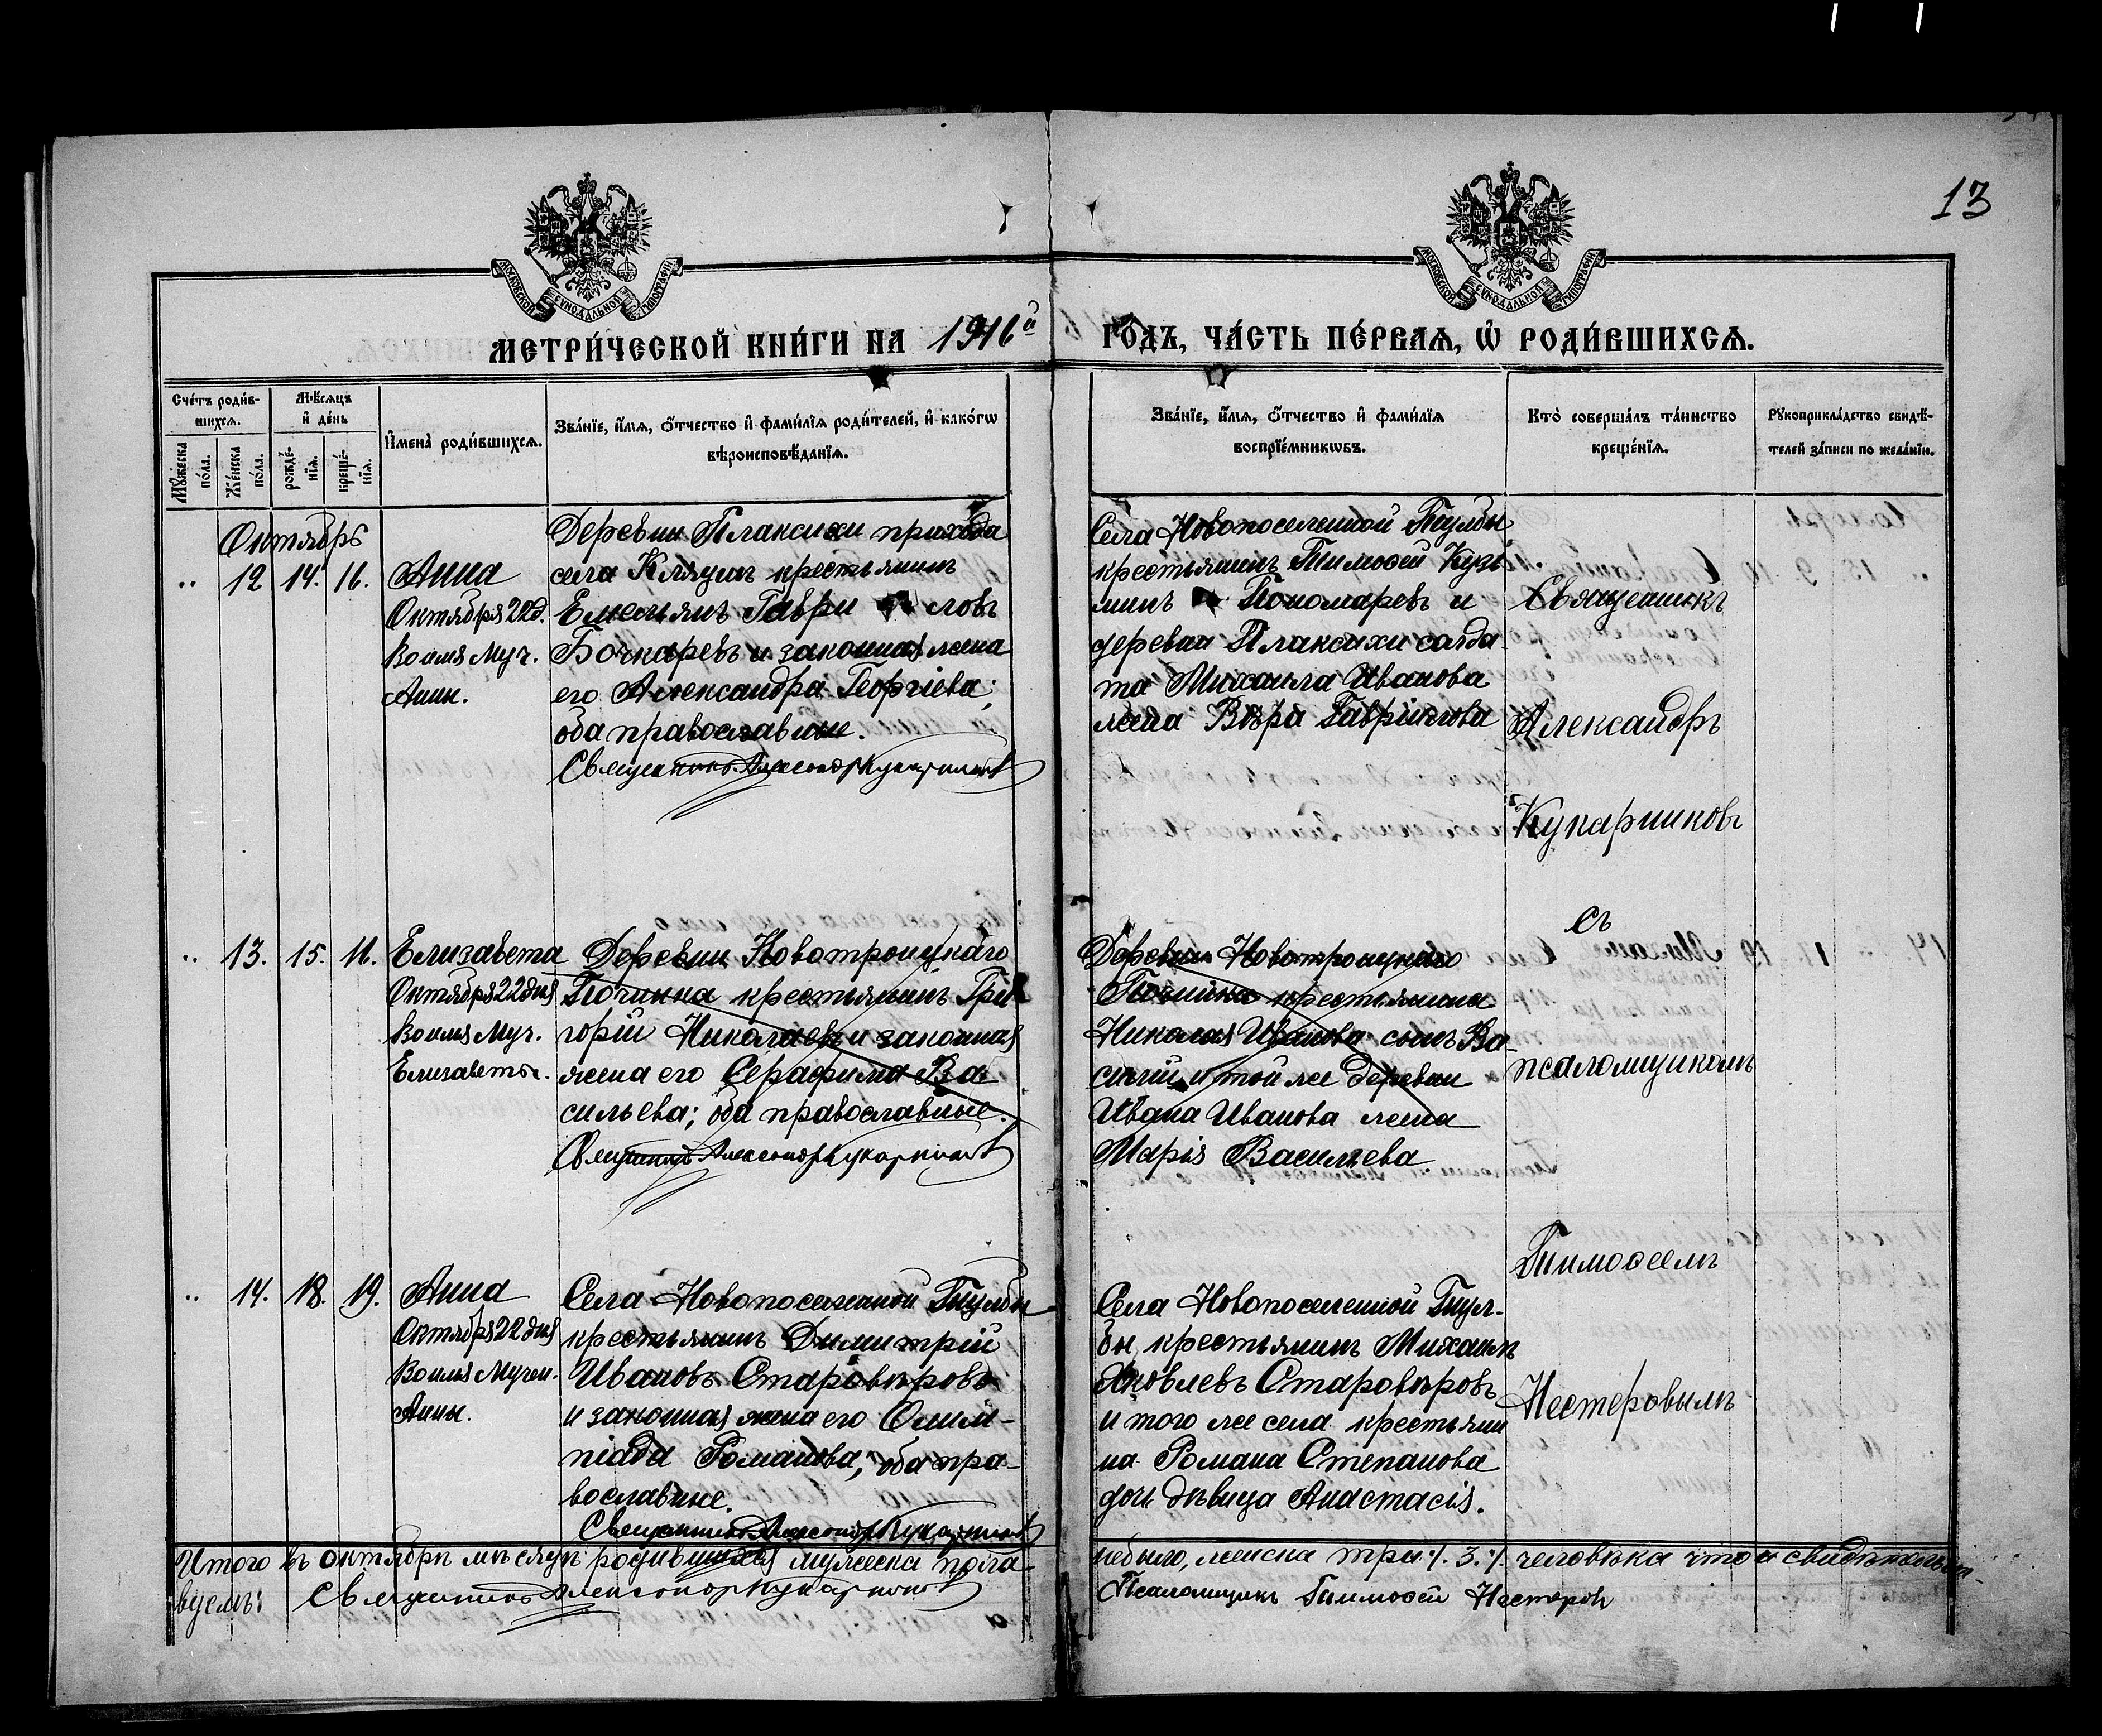 13
МОСКОВСКОЙ СѴНОДАЛЬНОЙ ТИПОГРАФІИ
МОСКОВСКОЙ СѴНОДАЛЬНОЙ ТИПОГРАФІИ
МЕТРИ́ЧЕСКОЙ КНИ́ГИ НА 1916й ГО́ДЪ, ЧА́СТЬ ПЕ́РВАѦ, Ѡ҆ РОДИ́ВШИХСѦ.
Сче́тъ роди́в-
шихсѧ.
Мꙋ́жеска
по́ла.
Же́неска
по́ла.
Мѣ́сѧцъ
и҆ де́нь
рожде́-
нїѧ.
креще́-
нїѧ.
И҆мена̀ роди́вшихсѧ.
Зва́нїе, и҆́мѧ, ѻ҆́тчество и҆ фами́лїѧ роди́телей, и҆ како́гѡ
вѣроисповѣ́данїѧ.
Зва́нїе, и҆́мѧ, ѻ҆́тчество и҆ фами́лїѧ
воспрїе́мникѡвъ.
Кто̀ соверша́лъ та́инство
креще́нїѧ.
Рꙋкоприкла́дство свидѣ́-
телей за́писи по жела́нїю.
Октябрь
" 12 14. 16.
Анна
Октября 22 д.
Во имя Муч.
Анны.
Деревни Плаксихи прихода
села Кляушъ крестьянинъ
Емельянъ Гаври ловъ
Бочкаревъ и законная жена
его Александра Георгіева;
оба православные.
Священникъ Александръ Кукарниковъ
Села Новопоселенной Тулбы
крестьянинъ Тимоѳей Кузь
минъ Пономаревъ и
деревни Плаксихи солда-
та Михаила Иванова
жена Вѣра Гаврилова
Священникъ
Александръ
Кукарниковъ
съ
псаломщикомъ
Тимоѳеемъ
Нестеровымъ
" 13. 15. 16.
Елизавета
Октября 22 дня
Во имя Муч.
Елизаветы.
Деревни Новотроицкаго
Починка крестьянинъ Гри
горій Николаевъ и законная
жена его Серафима Ва
сильева; оба православные.
Священникъ Александръ Кукарниковъ
Деревни Новотроицкаго
Починка крестьянина
Николая Иванова сынъ Ва-
силій и той же деревни
Ивана Иванова жена
Марія Васильева
" 14. 18. 19.
Анна
Октября 22 дня
Во имя Мучен.
Анны.
Села Новопоселенной Тулбы
крестьянинъ Димитрій
Ивановъ Старовѣровъ
и законная жена его Олим-
піада Романова; оба пра-
вославные.
Священникъ Александръ Кукарниковъ
Села Новопоселенной Тул-
бы крестьянинъ Михаилъ
Яковлевъ Старовѣровъ
и того же села крестьяни
на Романа Степанова
дочь дѣвица Анастасія.
Итого въ октябрѣ мѣсяцѣ родившихся мужеска пола
не было, женска три ·/. 3. ·/. человѣка что и свидѣтельст-
вуемъ: Священникъ Александръ Кукарниковъ
Псаломщикъ Тимоѳей Нестеровъ